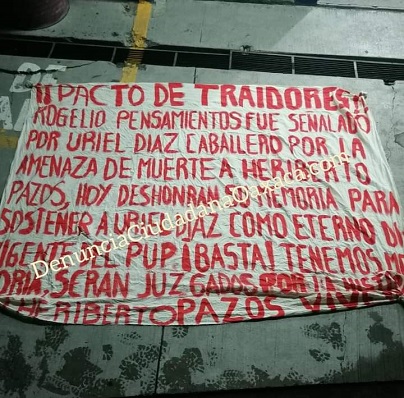 ¡¡PACTO DE TRAIDORES!!
ROGELIO PENSAMIENTOS FUE SEÑALADO
POR URIEL DIAZ CABALLERO POR LA
AMENAZA DE MUERTE A HERIBERTO
PAZOS, HOY DESHONRAN SU MEMORIA PARA
SOSTENER A URIEL DIAZ COMO ETERNO DI
IGENTE DEL PUP ¡BASTA! TENEMOS ME
ORIA, SERAN JUZGADOS POR
HERIBERTO PAZOS
DenunciaCiudadanaOaxaca.com